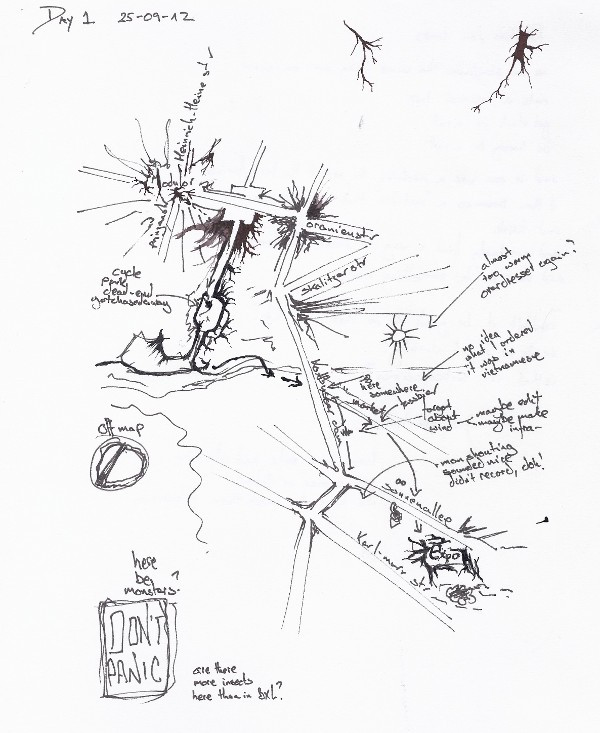 Day 1 25-09-12
Heinrich-Heine str
Modulor
oranienstr
skalitzer str
cycle
park
dead-end
almost
too warm
overdressed again?
no idea
what I ordered
it was in
vietnamese
here
somewhere
market
forgot
about
wind
maybe edit
maybe make
infra-
man shouting
sounded nice
didn't record, doh!
off map
sonnenallee
Expo
Karl-marx str
here
be
monsters?
DON'T
PANIC
are there
more insects
here than in BXL?